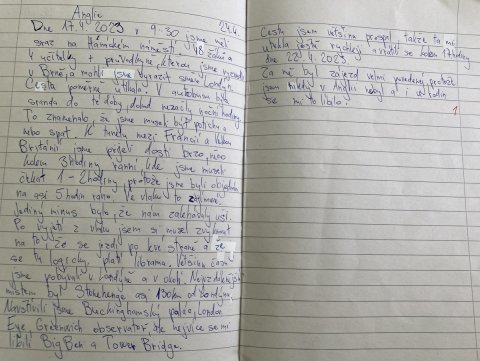 Anglie
24.4.
Dne 17.4. 2023 v 9:30 jsme měli
sraz na Hámském náměstí 48 žáků a
4 učitelky + průvodkyně, kterou jsme
v Brně, a mohli jsme vyrazit směr Londýn.
Cesta poměrně utíkala. V autobusu byla
sranda do té doby dokud nezačaly noční hodiny.
To znamenalo, že jsme museli být potichu a
nebo spát. K tunelu mezi Francií a Velkou
Británií jsme přijeli dosti brzo, něco
kolem 3 hodiny ranní, kde jsme museli
čekat 1 – 2 hodiny, protože jsme byli objednáni
na asi 5 hodin ráno. Ve vlaku to zajímavé,
jediný minus bylo, že nám zaléhávaly uši.
Po vyjetí z vlaku jsem si musel zvyknout
na to, že se jezdí po levé straně a že
se tu logicky platí librama. Většinu času
jsme pobývali v Londýně a v okolí. Nejvzdálenějším
místem byl Stonehenge asi 130km od Londýna.
Navštívili jsme Buckinghamský palác, London
Eye, Greenwich observatoř, ale nejvíce se mi
líbili Big Ben a Tower Bridge.
Cestu jsem většinu prospal, takže ta mi
utekla ještě rychleji a vrátili se kolem 17 hodiny
dne 22.4. 2023
Za mě byl zájezd velmi povedený, protože
jsem nikdy v Anglii nebyl a i celkově
se mi to líbilo!
1